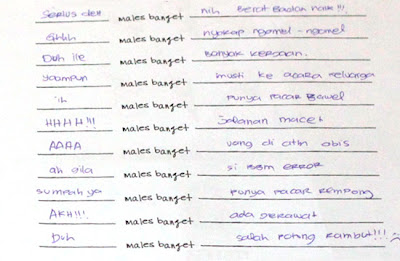 Serius deh males banget nih Berat Badan naik!!!.
Ehhh males banget nyokap ngomel - ngomel
Duh ile males banget Banyak kerjaan.
yaampun males banget musti ke acara keluarga
ih males banget punya pacar Bawel
HHHH!!! males banget Jalanan macet
AAAA males banget uang di ATM abis
ah gila males banget si BBM error
sumpah ya males banget punya pacar rempong
AKH!!! males banget ada Jerawat
Duh males banget salah potong rambut!!!